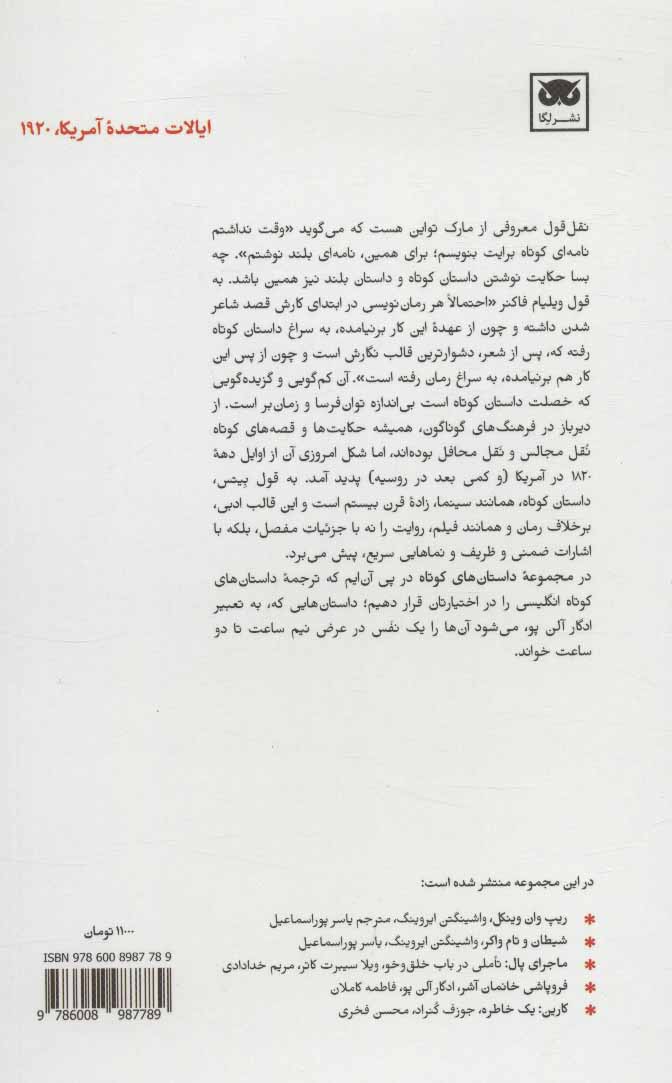 نشر لگا
ایالات متحدهٔ آمریکا، ۱۹۲۰
نقل‌قول معروفی از مارک تواین هست که می‌گوید «وقت نداشتم
نامه‌ای کوتاه برایت بنویسم؛ برای همین، نامه‌ای بلند نوشتم». چه
بسا حکایت نوشتن داستان کوتاه و داستان بلند نیز همین باشد. به
قول ویلیام فاکنر «احتمالاً هر رمان‌نویسی در ابتدای کارش قصد شاعر
شدن داشته و چون از عهدهٔ این کار برنیامده، به سراغ داستان کوتاه
رفته که، پس از شعر، دشوارترین قالب نگارش است و چون از پس این
کار هم برنیامده، به سراغ رمان رفته است». آن کم‌گویی و گزیده‌گویی
که خصلت داستان کوتاه است بی‌اندازه توان‌فرسا و زمان‌بر است. از
دیرباز در فرهنگ‌های گوناگون، همیشه حکایت‌ها و قصه‌های کوتاه
نُقل مجالس و نَقل محافل بوده‌اند، اما شکل امروزی آن از اوایل دههٔ
۱۸۲۰ در آمریکا (و کمی بعد در روسیه) پدید آمد. به قول بِیتس،
داستان کوتاه، همانند سینما، زادهٔ قرن بیستم است و این قالب ادبی،
برخلاف رمان و همانند فیلم، روایت را نه با جزئیات مفصل، بلکه با
اشارات ضمنی و ظریف و نماهایی سریع، پیش می‌برد.
در مجموعهٔ داستان‌های کوتاه در پی آن‌ایم که ترجمهٔ داستان‌های
کوتاه انگلیسی را در اختیارتان قرار دهیم؛ داستان‌هایی که، به تعبیر
ادگار آلن پو، می‌شود آن‌ها را یک نفَس در عرض نیم ساعت تا دو
ساعت خواند.
در این مجموعه منتشر شده است:
* ریپ وان وینکل، واشینگتن ایروینگ، مترجم یاسر پوراسماعیل
* شیطان و تام واکر، واشینگتن ایروینگ، یاسر پوراسماعیل
* ماجرای پال: تأملی در باب خلق‌وخو، ویلا سیبرت کاتر، مریم خدادادی
* فروپاشی خاندان آشر، ادگار آلن پو، فاطمه کاملان
* کارین: یک خاطره، جوزف کُنراد، محسن فخری
۱۱۰۰۰ تومان
ISBN 978 600 8987 78 9
9 786008 987789